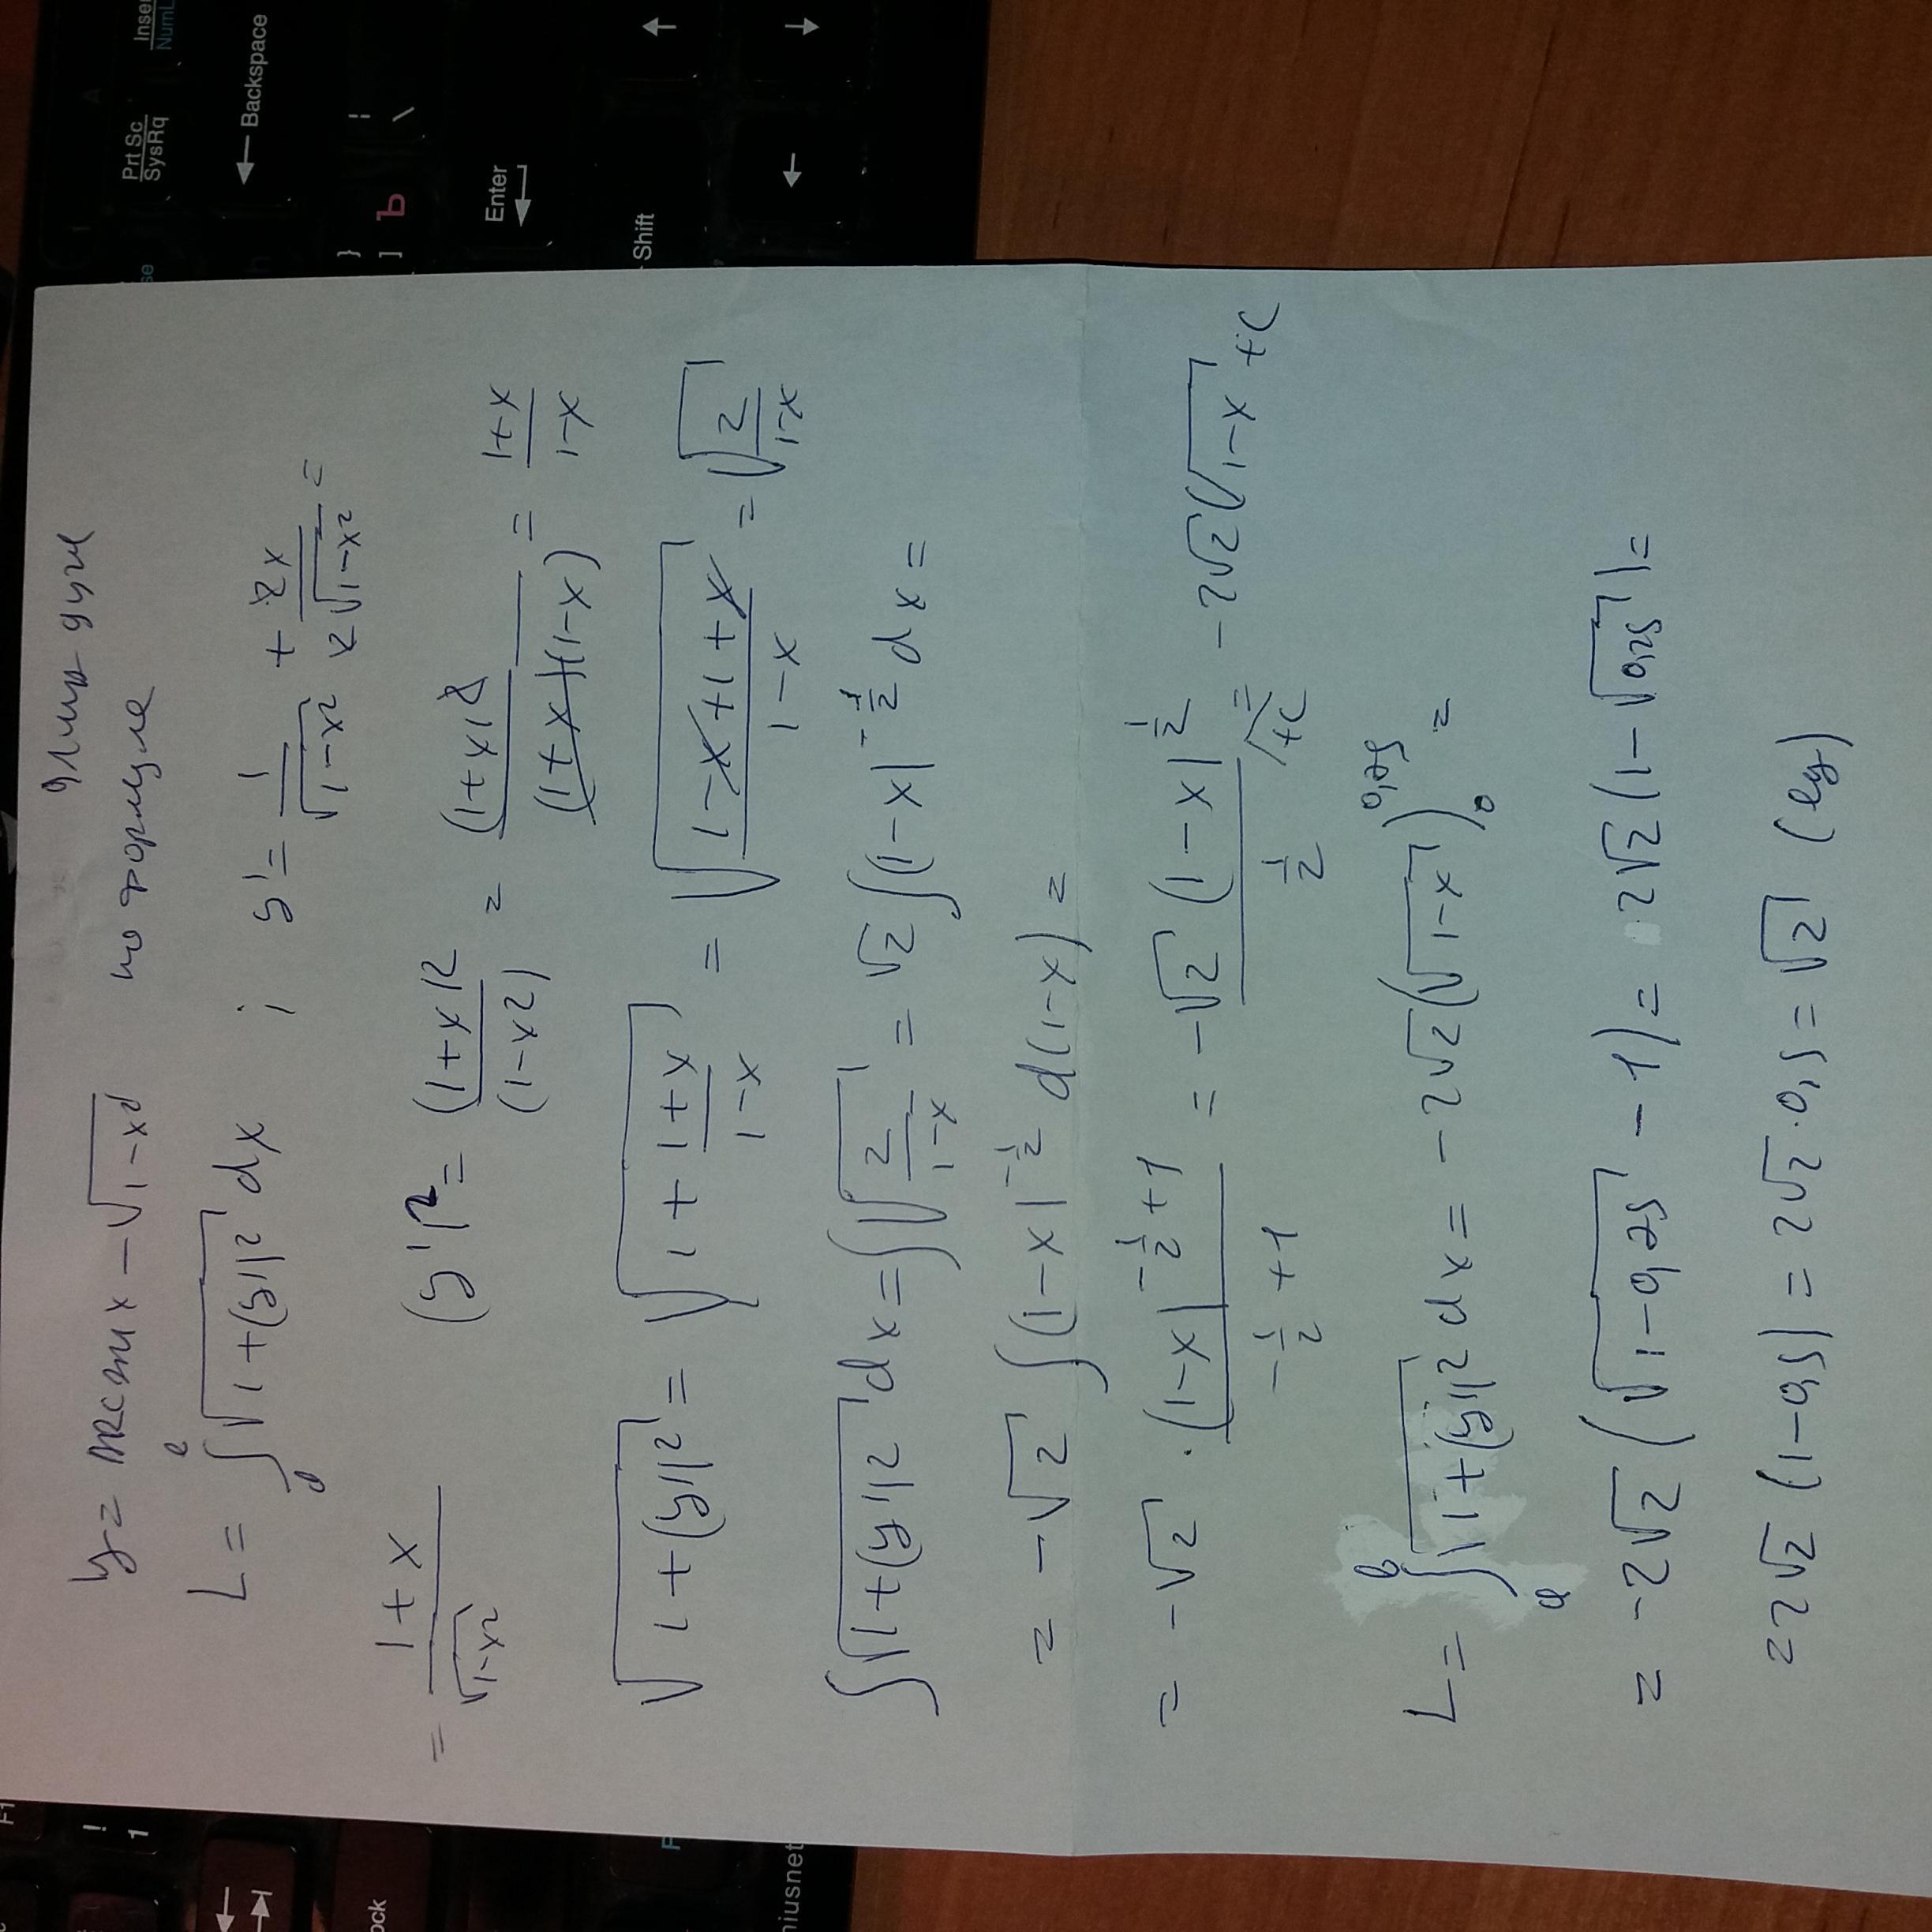 y = arcsin x − √(1−x²) Длина дуги
по формуле
L = ∫ₐᵇ √(1+(y')²) dx ; y' = 1/√(1−x²) + 2x/(2√(1−x²)) =
= (1+x)/√(1−x²) (y')² = (1+x)²/(1−x²) = (1+x)²/((1+x)(1−x)) = (1+x)/(1−x)
√(1+(y')²) = √(1 + (1+x)/(1−x)) = √((1−x+1+x)/(1−x)) = √(2/(1−x))
∫√(1+(y')²) dx = ∫√(2/(1−x)) = √2 ∫(1−x)^(−1/2) dx =
= −√2 ∫(1−x)^(−1/2) d(1−x) =
= −√2 · (1−x)^(−1/2+1)/(−1/2+1) = −√2 (1−x)^(1/2)/(1/2) + C = −2√2(√(1−x)) + C
L = ∫ₐᵇ √(1+(y')²) dx = −2√2(√(1−x))|₀^0,75 =
= −2√2(√(1−0,75) − 1) = 2·√2(1−√0,25) =
= 2√2 (1−0,5) = 2√2·0,5 = √2 (ед)
Prt Sc
SysRq
Backspace
Enter
Shift
} ] Ъ
| \
! 1
F1